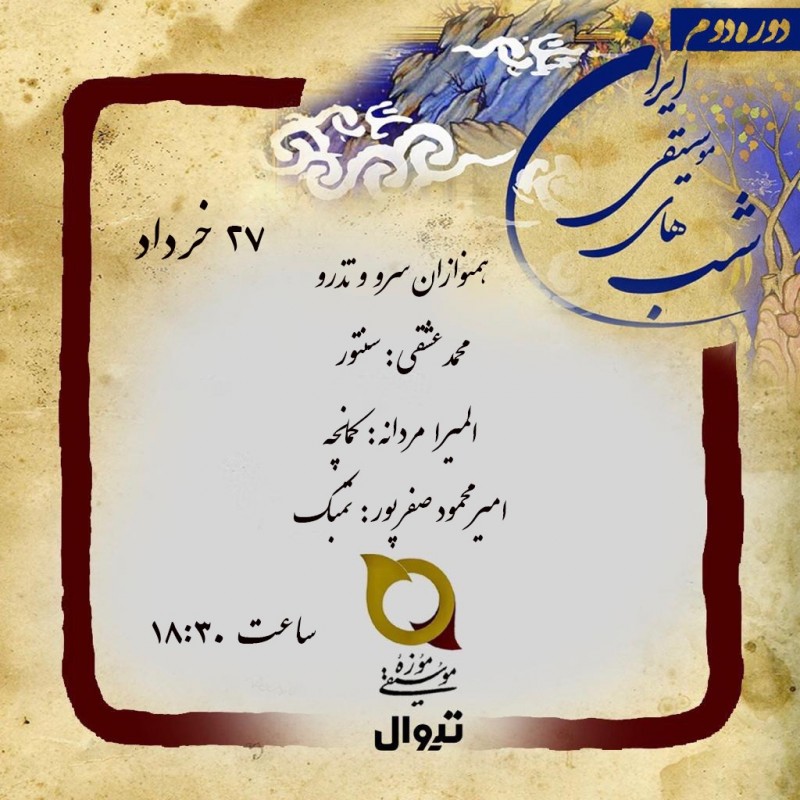 دوره دوم
شب های موسیقی ایران
۲۷ خرداد
همنوازان سرو و تذرو
محمد عشقی: سنتور
المیرا مردانه: کمانچه
امیرمحمود صفرپور: تمبک
ساعت ۱۸:۳۰
موزهٔ
موسیقی
تیوال